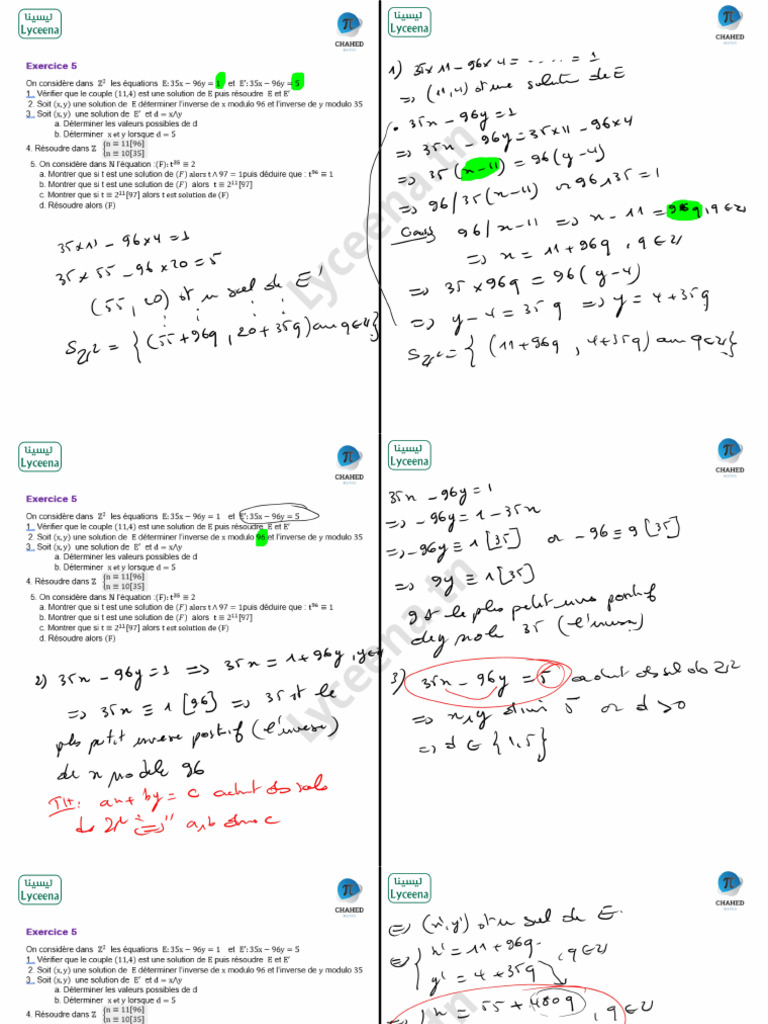 ليسينا
Lyceena
CHAHED
MATHS
Exercice 5
On considère dans ℤ² les équations E:35x − 96y = 1 et E′:35x − 96y = 5
1. Vérifice que le couple (11,4) est une solution de E puis résoudre E et E′
2. Soit (x,y) une solution de E déterminer l'inverse de x modulo 96 et l'inverse de y modulo 35
3. Soit (x,y) une solution de E′ et d = x∧y
a. Déterminer les valeurs possibles de d
b. Déterminer x et y lorsque d = 5
4. Résoudre dans ℤ {n ≡ 11[96]
{n ≡ 10[35]
5. On considère dans N l'équation :(F): t³⁵ ≡ 2
a. Montrer que si t est une solution de (F) alors t∧97 = 1puis déduire que : t⁹⁶ ≡ 1
b. Montrer que si t est une solution de (F) alors t ≡ 2¹¹[97]
c. Montrer que si t ≡ 2¹¹[97] alors t est solution de (F)
d. Résoudre alors (F)
35×11 − 96×4 = 1
35×55 − 96×20 = 5
(55, 20) st u sol de E'
S_ℤ² = {(55+96q, 20+35q) avec q∈ℤ}
ليسينا
Lyceena
CHAHED
MATHS
1) 35×11 − 96×4 = ...... = 1
=> (11,4) st une solution de E
• 35x − 96y = 1
=> 35x − 96y = 35×11 − 96×4
=> 35(x−11) = 96(y−4)
=> 96/35(x−11) or 96∧35 = 1
Gauss 96/x−11 => x−11 = 96q, q∈ℤ
=> x = 11+96q, q∈ℤ
=> 35×96q = 96(y−4)
=> y−4 = 35q => y = 4+35q
S_ℤ² = {(11+96q, 4+35q) avec q∈ℤ}
Lyceena.tn
ليسينا
Lyceena
CHAHED
MATHS
Exercice 5
On considère dans ℤ² les équations E:35x − 96y = 1 et E′:35x − 96y = 5
1. Vérifier que le couple (11,4) est une solution de E puis résoudre E et E′
2. Soit (x,y) une solution de E déterminer l'inverse de x modulo 96 et l'inverse de y modulo 35
3. Soit (x,y) une solution de E′ et d = x∧y
a. Déterminer les valeurs possibles de d
b. Déterminer x et y lorsque d = 5
4. Résoudre dans ℤ {n ≡ 11[96]
{n ≡ 10[35]
5. On considère dans N l'équation :(F): t³⁵ ≡ 2
a. Montrer que si t est une solution de (F) alors t∧97 = 1puis déduire que : t⁹⁶ ≡ 1
b. Montrer que si t est une solution de (F) alors t ≡ 2¹¹[97]
c. Montrer que si t ≡ 2¹¹[97] alors t est solution de (F)
d. Résoudre alors (F)
2) 35x − 96y = 1 => 35x = 1+96y,
=> 35x ≡ 1 [96] => 35 st le
plus petit inverse positif (l'inverse)
de x modulo 96
TH: ax + by = c admet des sols
ds ℤ² "<=>" a∧b divise c
ليسينا
Lyceena
CHAHED
MATHS
35x − 96y = 1
=> −96y = 1 − 35x
=> −96y ≡ 1 [35] or −96 ≡ 9 [35]
=> 9y ≡ 1 [35]
9 st le plus petit inverse positif
de y modulo 35 (l'inverse)
3) 35x − 96y = 5 admet des sol ds ℤ²
=> x∧y divise 5 or d>0
=> d ∈ {1,5}
Lyceena.tn
ليسينا
Lyceena
CHAHED
MATHS
Exercice 5
On considère dans ℤ² les équations E:35x − 96y = 1 et E′:35x − 96y = 5
1. Vérifier que le couple (11,4) est une solution de E puis résoudre E et E′
2. Soit (x,y) une solution de E déterminer l'inverse de x modulo 96 et l'inverse de y modulo 35
3. Soit (x,y) une solution de E′ et d = x∧y
a. Déterminer les valeurs possibles de d
b. Déterminer x et y lorsque d = 5
4. Résoudre dans ℤ {n ≡ 11[96]
{n ≡ 10[35]
ليسينا
Lyceena
CHAHED
MATHS
<=> (x',y') st u sol de E.
<=> {x' = 11+96q
{y' = 4+35q, q∈ℤ
x = 55+480q, q∈ℤ